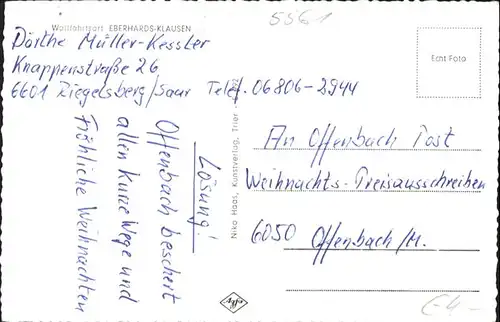 5561
Wallfahrtsort EBERHARDS-KLAUSEN
Dörthe Müller-Kessler
Knappenstraße 26
6601 Ziegelsberg/Saar Telef. 06806-2944
Lösung!
Offenbach beschert
allen kurze Wege und
Fröhliche Weihnachten
Niko Haas, Kunstverlag, Trier
Echt Foto
An Offenbach Post
Weihnachts-Preisausschreiben
6050 Offenbach/M.
Agfa
€4-